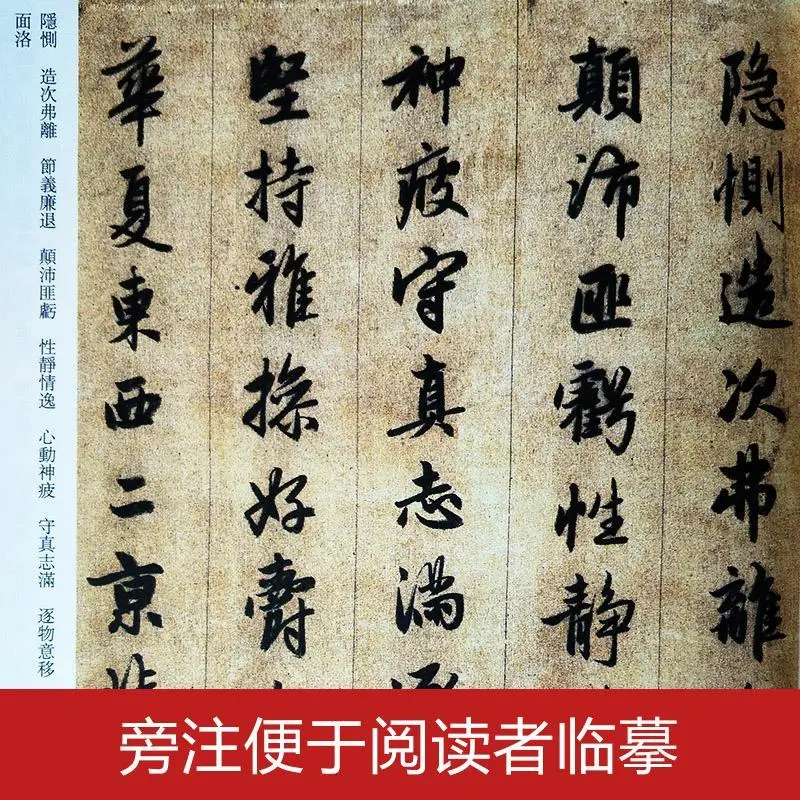 隐惻造次弗離
顛沛匪虧性静
神疲守真志滿
堅持雅操好爵
華夏東西二亰
隱惻 造次弗離 節義廉退 顛沛匪虧 性靜情逸 心動神疲 守真志滿 逐物意移
面洛
旁注便于阅读者临摹